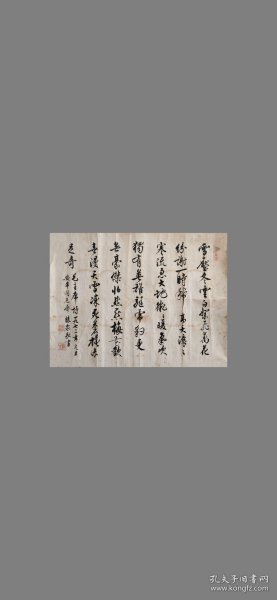 雪壓冬雲白絮飛萬花
紛謝一時稀高天滾々
寒流急大地微々暖氣吹
獨有英雄驅虎豹更
無豪傑怕熊羆梅花歡
喜漫天雪凍死蒼蠅未
足奇
毛主席 詩一九七二年元旦
孔夫子旧书网